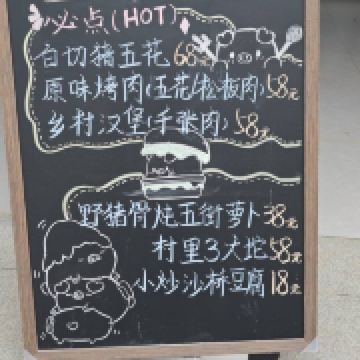 必点(HOT)
白切猪五花 68元
原味烤肉(五花/松板肉)58元
乡村汉堡(手张肉)58元
野猪骨炖五街萝卜38元
村里3大坨58元
小炒沙桥豆腐18元